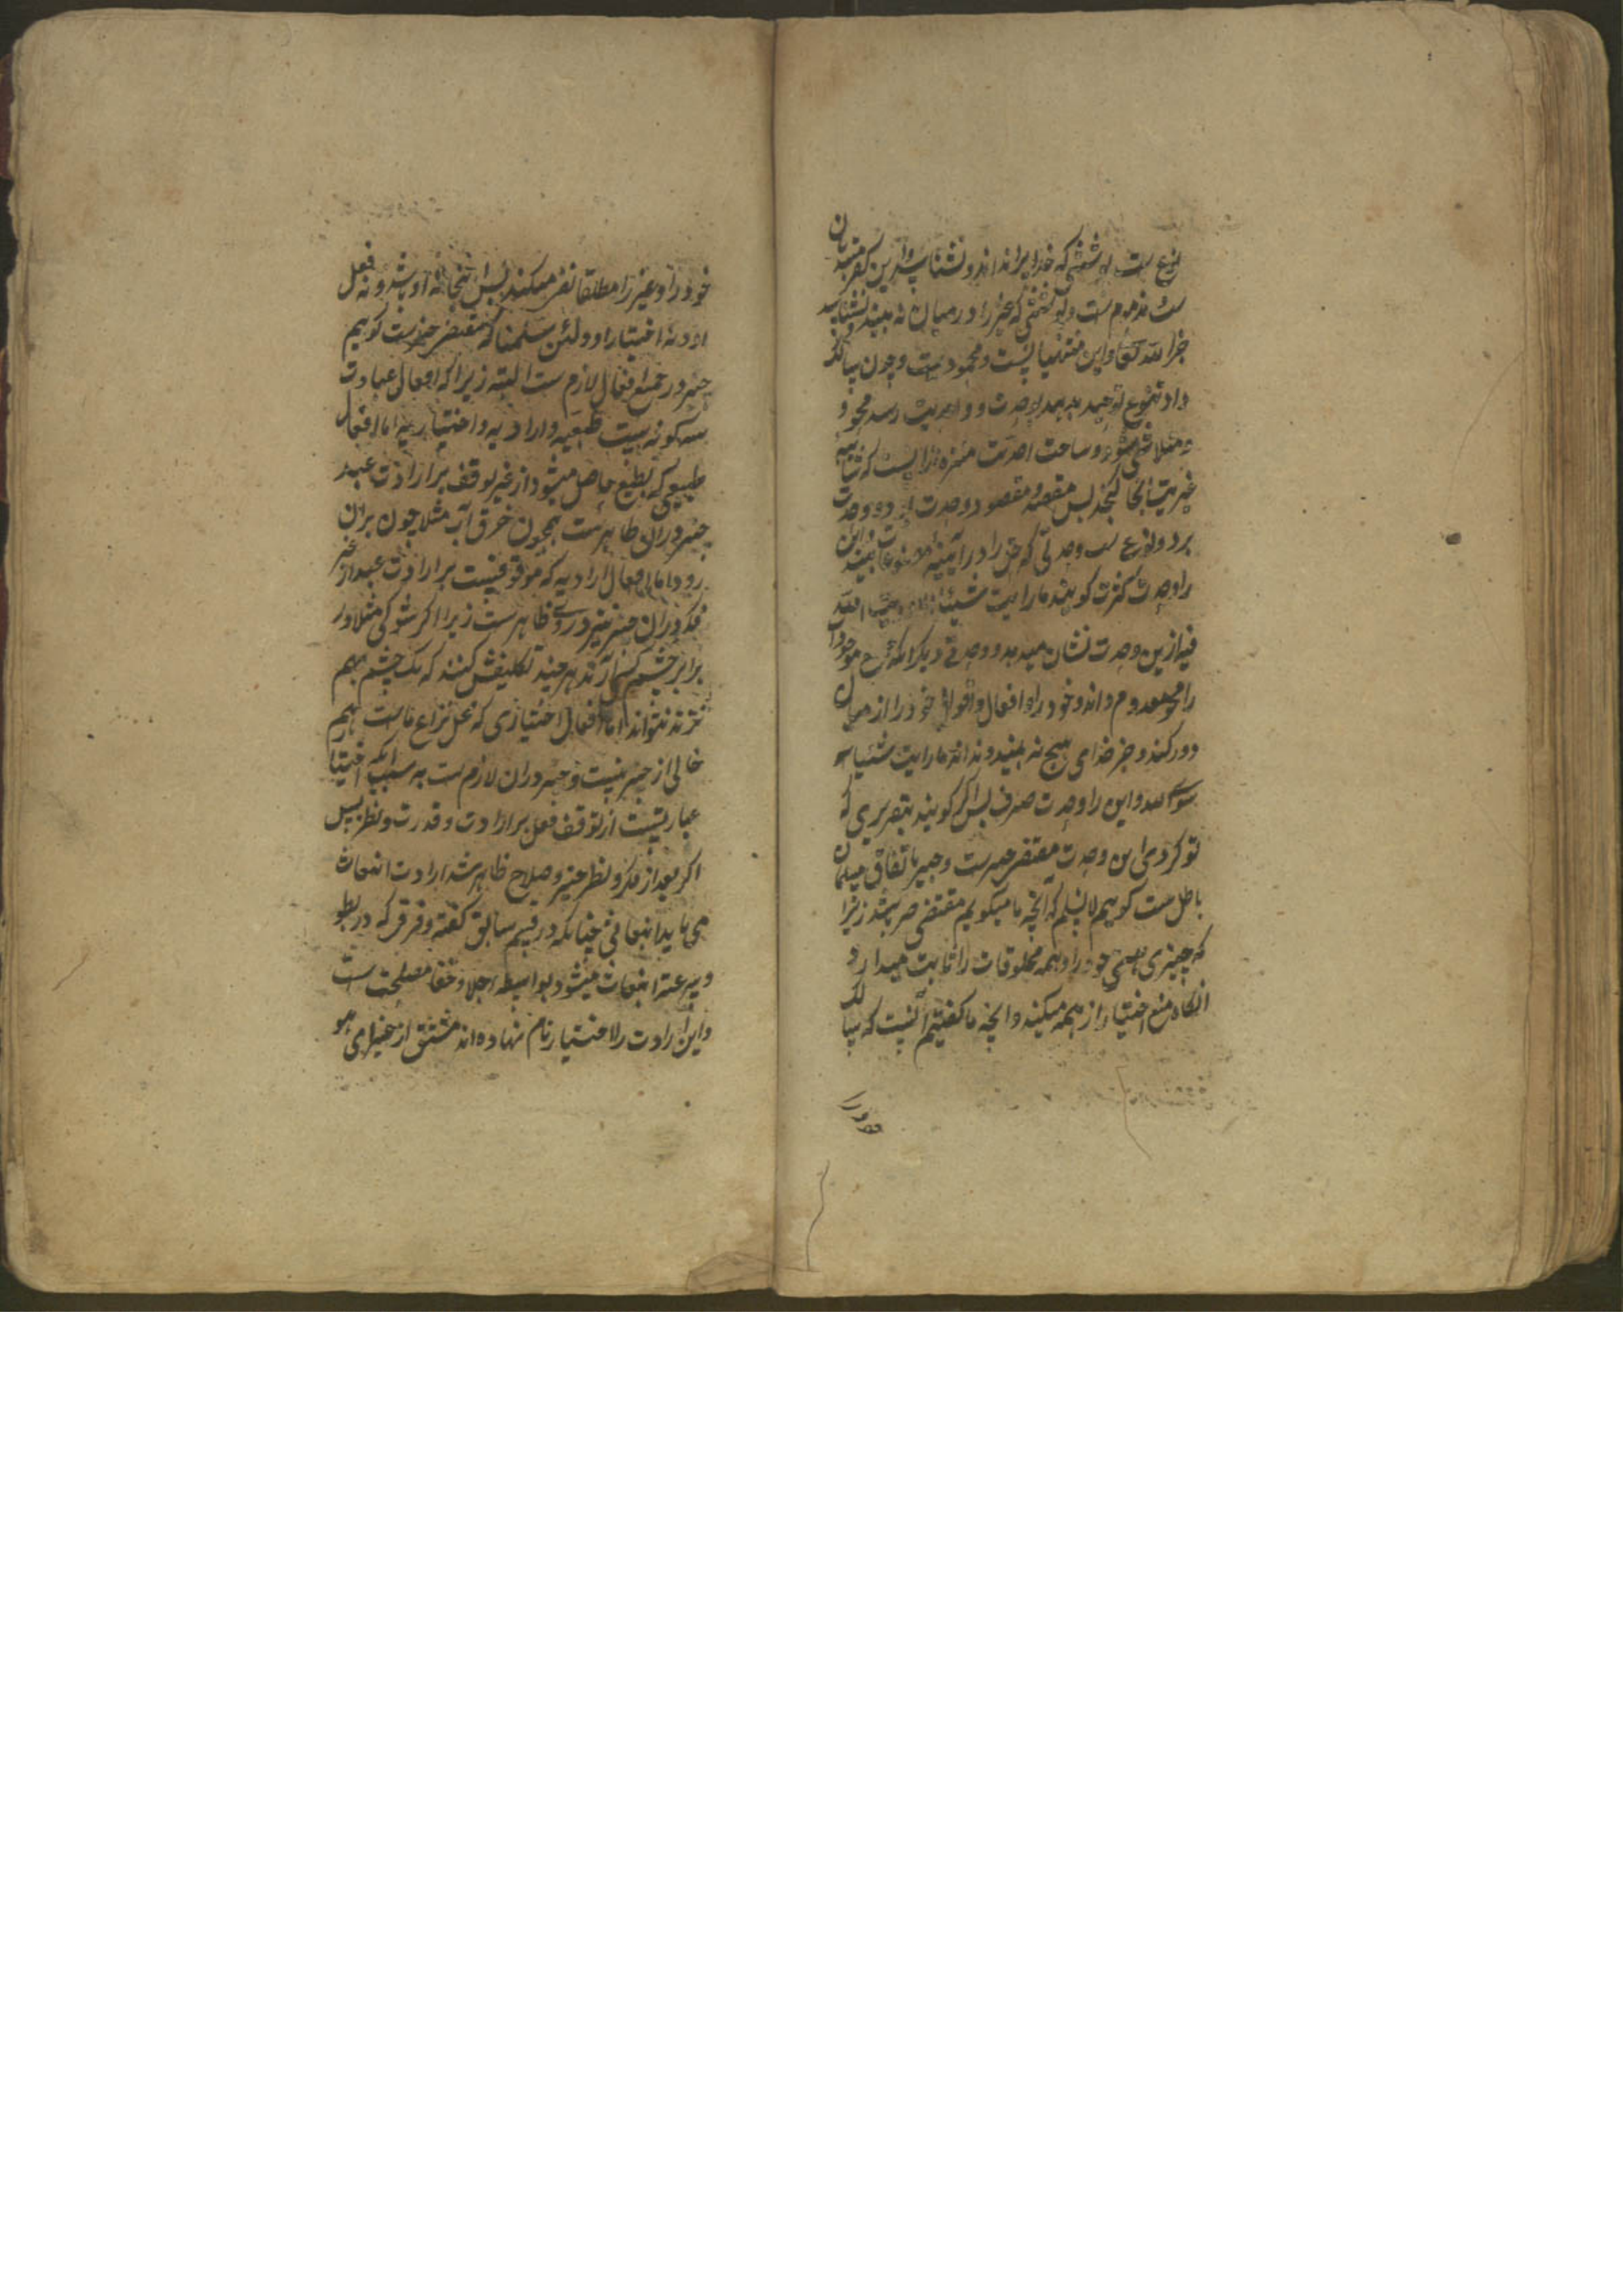 نوع ست پوششی که خدایرا نداند و نشناسد و این کفر مبتدیان
ست مذموم ست و پوششی که غیر را در میان نه بیند و نشناسد
جز الله تعالی و این منتهیانست و محمودست و چون سالک
داد تنوع توحید بدهد بوحدت و واحدیت رسد محو و
متلاشی شود و ساحت احدیت منزه ازانست که شایبه
غیریت آنجا گنجد پس مقصد و مقصود وحدت بود و وحدت
بر دو نوع ست وحدتی که حق را در آیینه مصنوعات بیند و این
را وحدت کثرت گویند ما رایت شیئا الا و رایت الله
فیه ازین وحدت نشان میدهد و وحدتی دیگر آنکه جمیع موجودات
را محو و معدوم داند و خود را و افعال و اقوال خود را از میان
دور کند و جز خدای هیچ نه بیند و نداند ما رایت شیئا
سوی الله و این را وحدت صرف پس اگر گویند بتقریری که
تو کردی این وحدت مقتضی جبرست و جبر باتفاق مسلمانان
باطل ست گوییم لا نسلم که آنچه ما میگوییم مقتضی جبر باشد زیرا
که جبری هستی خود را و همه مخلوقات را ثابت میدارد
آنگاه منع اختیار از همه میکند و آنچه ما گفتیم آنست که سالک
خود را
خود را و غیر را مطلقا نفی میکند پس آنجا نه او باشد و نه فعل
او و نه اختیار او و لئن سلمنا که مقتضی جبرست گوییم
جبر در جمیع افعال لازم ست البته زیرا که افعال عباد
سه گونه است طبعیه و ارادیه و اختیاریه اما افعال
طبیعی که بطبع حاصل میشود از غیر توقف بر ارادت عبد
جبر در آن ظاهرست همچون خرق آب مثلا چون بران
رود اما افعال ارادیه که موقوفست بر ارادت عبد از غیر
فکر دران جبر نیز ظاهرست زیرا اگر شوکی مثلا در
برابر چشم کسی آرند هر چند تکلیفش کنند که یک چشم بهم
نزند نتواند اما افعال اختیاری که محل نزاع ماست هم
خالی از جبر نیست و جبر دران لازم ست به سبب آنکه اختیار
عبارتست از توقف فعل بر ارادت و قدرت و نظر پس
اگر بعد از فکر و نظر خیر و صلاح ظاهر شد ارادت انبعاث
می یابد انبعاثی چنانکه در قسم سابق گفته و فرقی که در بطو
و سرعت انبعاث میشود بواسطه جلا و خفا مصلحت ست
و این ارادت را اختیار نام نهاده اند مشتق از خیر ای هو